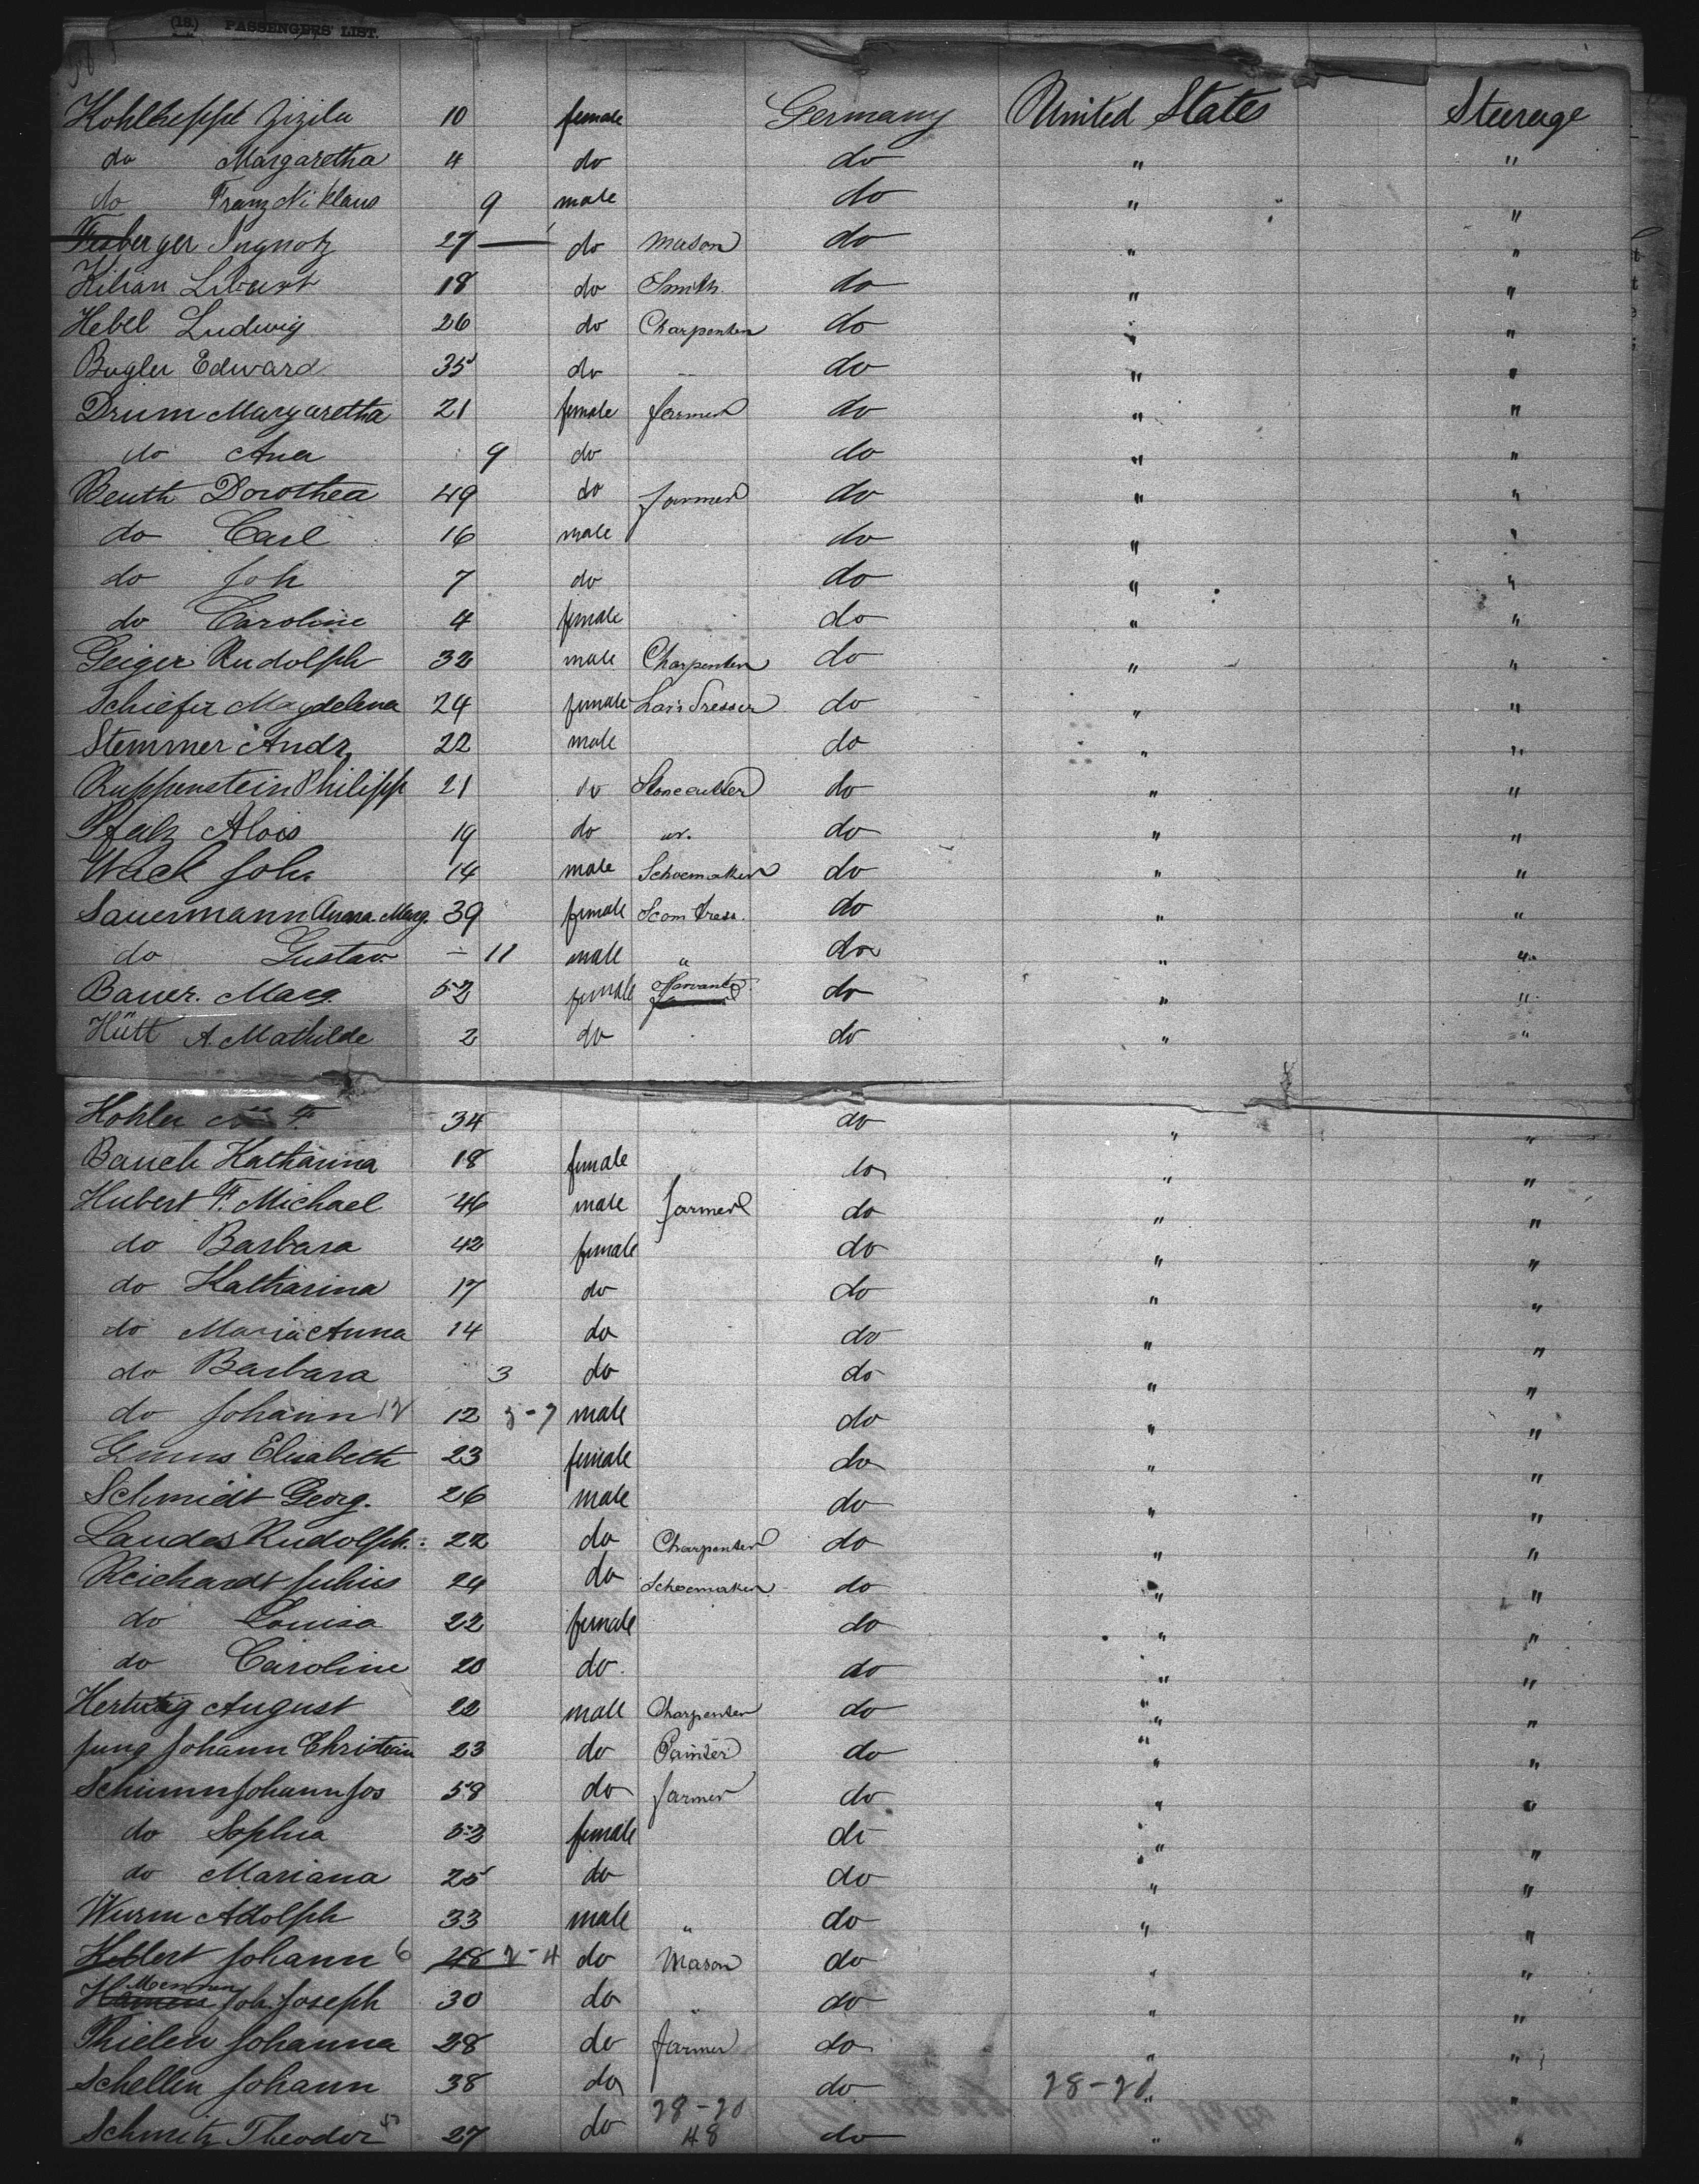 (18.) PASSENGERS' LIST.
Kohlheppt Zizila 10 female Germany United States Steerage
do Margaretha 4 do do " "
do Franz Niklaus 9 male do " "
berger Ingnatz 27 — do Mason do " "
Kilian Libort 18 do Smith do " "
Hebel Ludwig 26 do Charpenter do " "
Bugler Edward 35 do -- do " "
Drum Margaretha 21 female farmer do " "
do Ana 9 do do " "
Beuth Dorothea 49 do farmer do " "
do Carl 16 male do " "
do Joh 7 do do " "
do Caroline 4 female do " "
Geiger Rudolph 32 male Charpenter do " "
Schiefer Magdelena 24 female do " "
Stemmer Andr. 22 male do " "
Ruppenstein Philipp 21 do Stonecutter do " "
Pfalz Alois 19 do do " "
Wack Joh. 14 male Schoemaker do " "
Sauermann Anna Marg. 39 female Seamtress. do " "
do Gustav — 11 male " do " "
Bauer. Marg. 52 female Servant do " "
Hütt A. Mathilde 2 do do " "
Kohler 34 do " "
Bauch Katharina 18 female do " "
Hubert F. Michael 46 male farmer do " "
do Barbara 42 female do " "
do Katharina 17 do do " "
do Maria Anna 14 do do " "
do Barbara 3 do do " "
do Johann 12 12 male do " "
Elisabeth 23 female do " "
Schmidt Georg. 26 male do " "
Landes Rudolph. 22 do Charpenter do " "
Reichardt Julius 24 do Schoemaker do " "
do Louisa 22 female do " "
do Caroline 20 do. do " "
Hertwig August 22 male Charpenter do " "
Jung Johann Christian 23 do Painter do " "
Schumm Johann Jos 58 do farmer do " "
do Sophia 52 female do " "
do Mariana 25 do do " "
Wurm Adolph 33 male " do " "
Johann 6 48 2-4 do Mason do " "
Joh. Joseph 30 do " do " "
Thielen Johanna 28 do farmer do " "
Schellen Johann 38 do do 28-20 " "
28-20
Schmitz Theodor 27 do 48 do " "